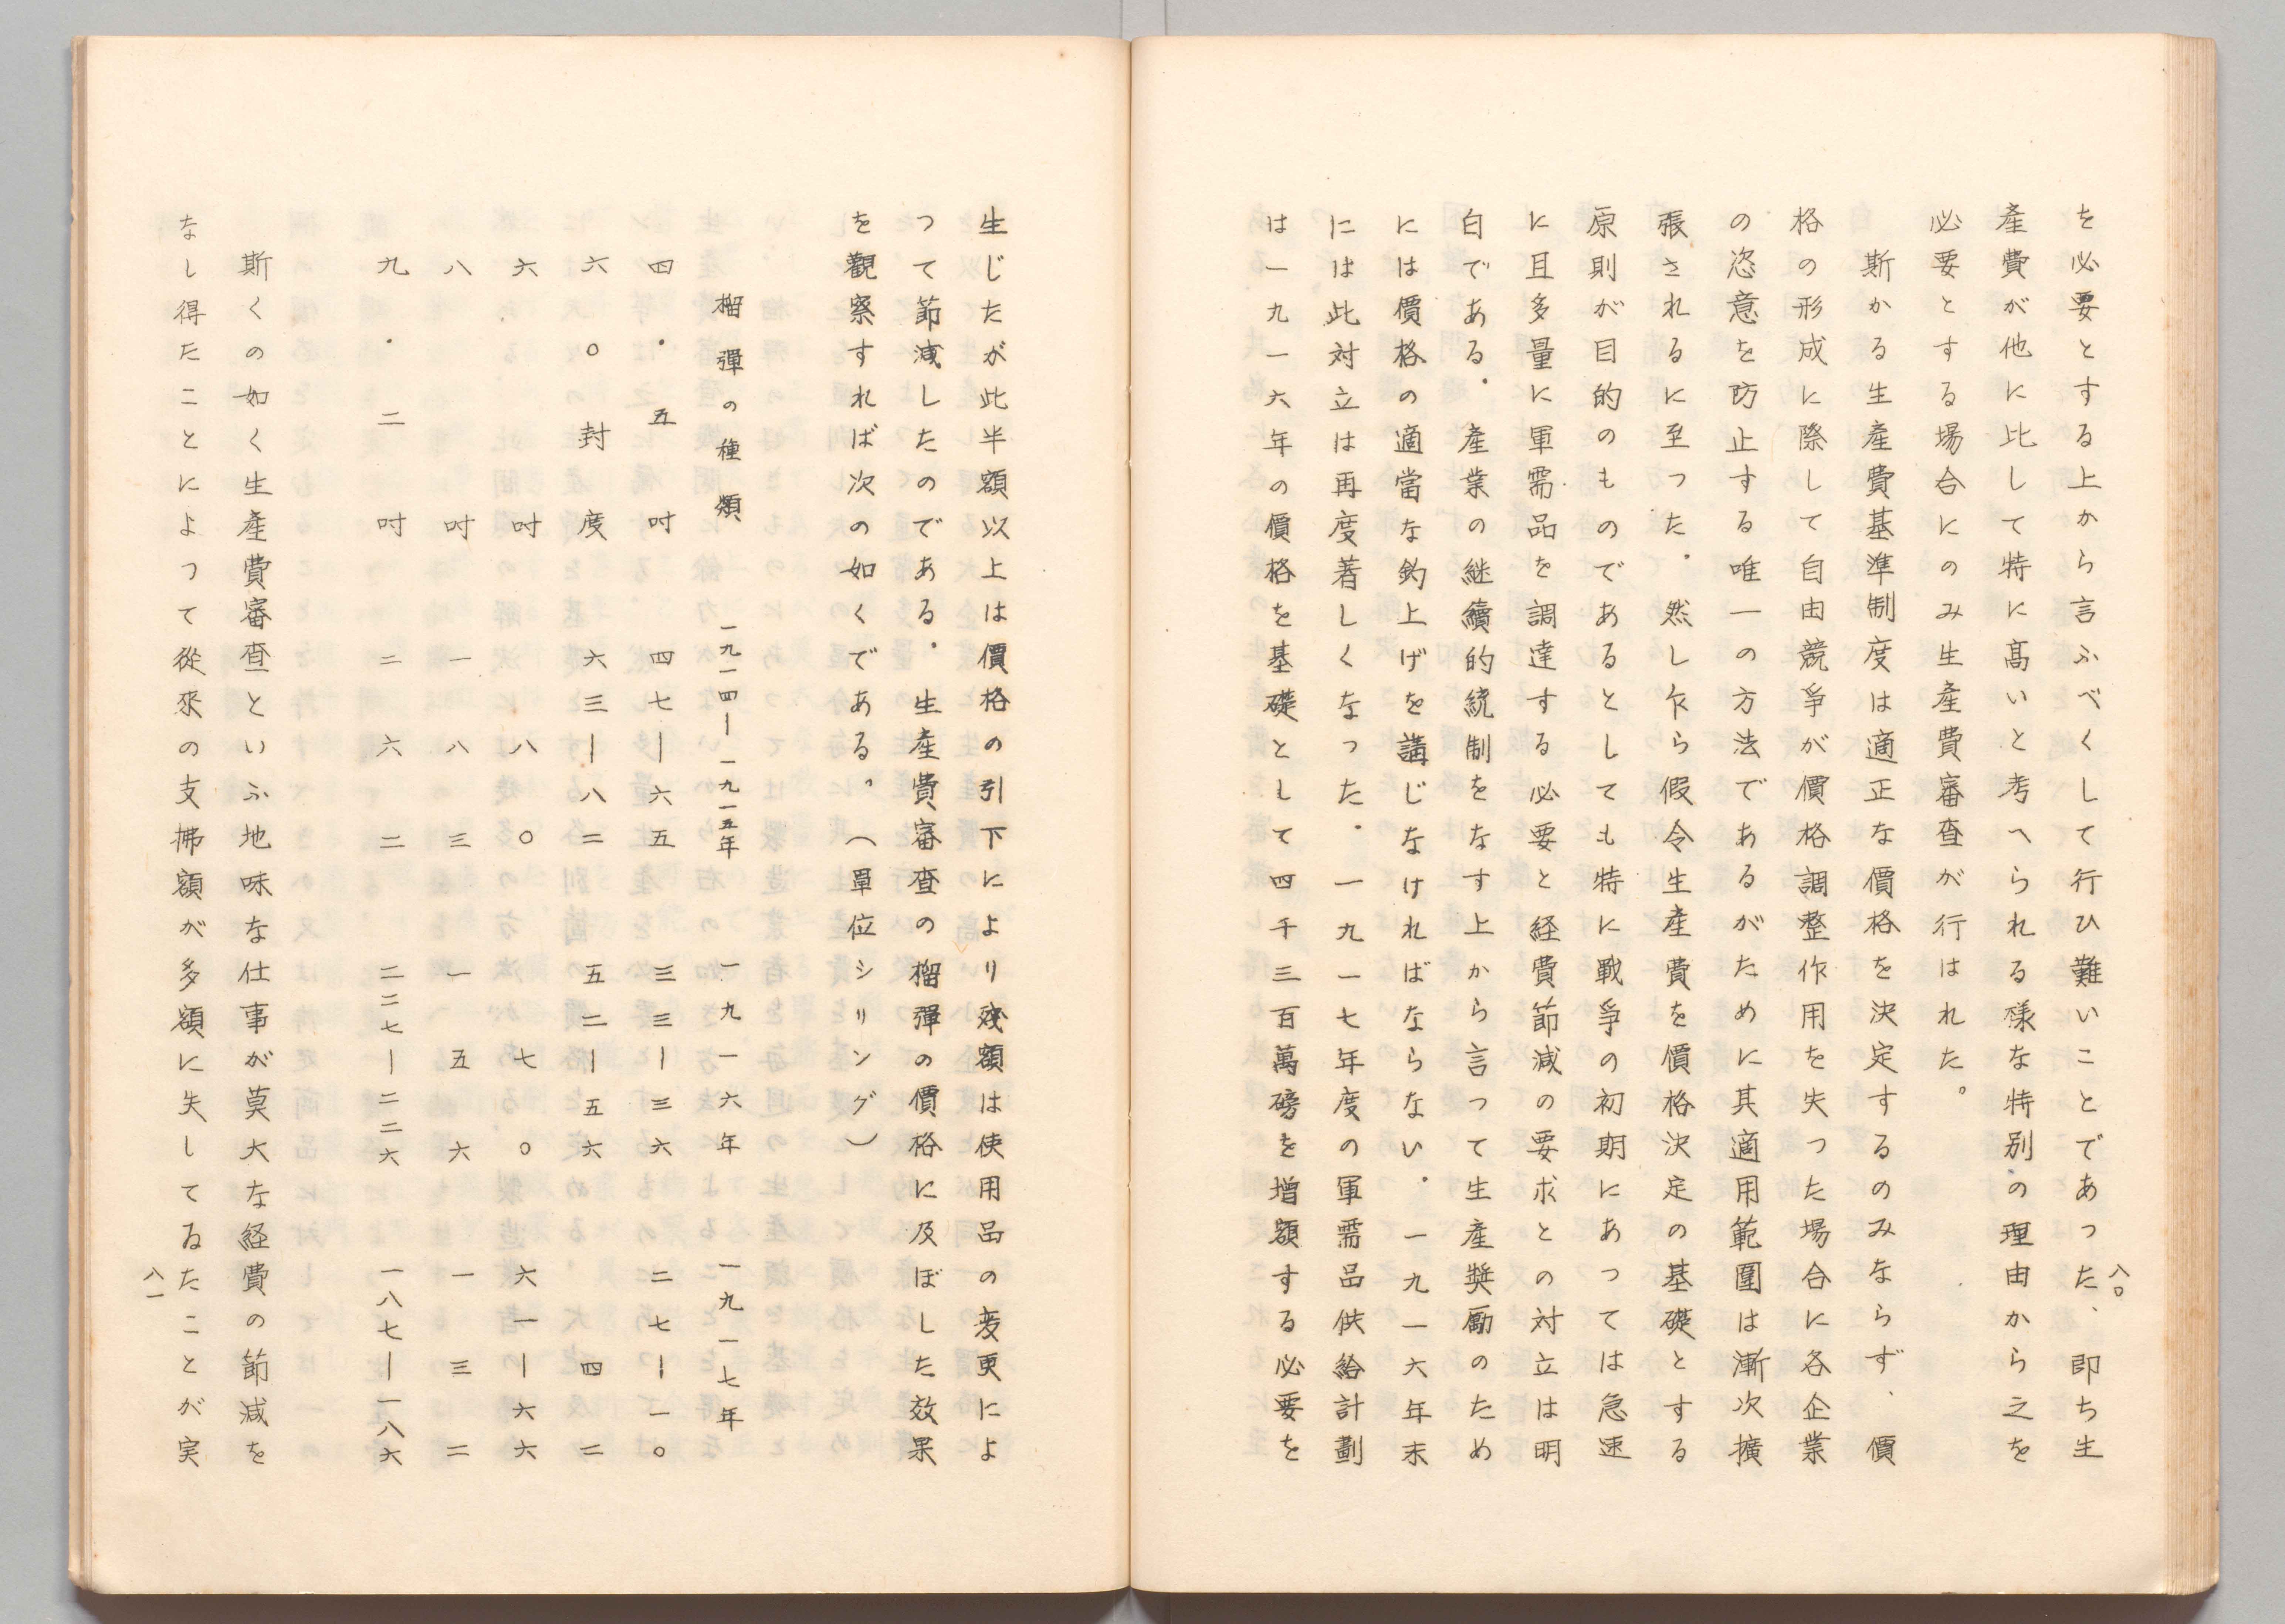 八〇
を必要とする上から言ふべくして行ひ難いことであった、即ち生
産費が他に比して特に高いと考へられる様な特別の理由から之を
必要とする場合にのみ生産費審査が行はれた。
斯かる生産費基準制度は適正な價格を決定するのみならず、價
格の形成に際して自由競爭が價格調整作用を失つた場合に各企業
の恣意を防止する唯一の方法であるがために其適用範圍は漸次擴
張されるに至つた。然し乍ら假令生産費を價格決定の基礎とする
原則が目的のものであるとしても特に戰爭の初期にあつては急速
に且多量に軍需品を調達する必要と経費節減の要求との対立は明
白である。産業の継續的統制をなす上から言つて生産奬勵のため
には價格の適當な釣上げを講じなければならない。一九一六年末
には此対立は再度著しくなつた。一九一七年度の軍需品供給計劃
は一九一六年の價格を基礎として四千三百萬磅を増額する必要を
生じたが此半額以上は價格の引下により残額は使用品の変更によ
つて節減したのである。生産費審査の榴彈の價格に及ぼした效果
を觀察すれば次の如くである。（單位シリング）
榴彈の種類 一九一四―一九一五年 一九一六年 一九一七年
四・五吋 四七―六五 三三―三六 二七―一〇
六〇封度 六三―八二 五二―五六 四二
六吋 八〇 七〇 六一―六六
八吋 一八三 一五六 一三二
九・二吋 二六二 二二七―二二六 一八七―一八六
斯くの如く生産費審査といふ地味な仕事が莫大な経費の節減を
なし得たことによつて從來の支拂額が多額に失してゐたことが実
八一